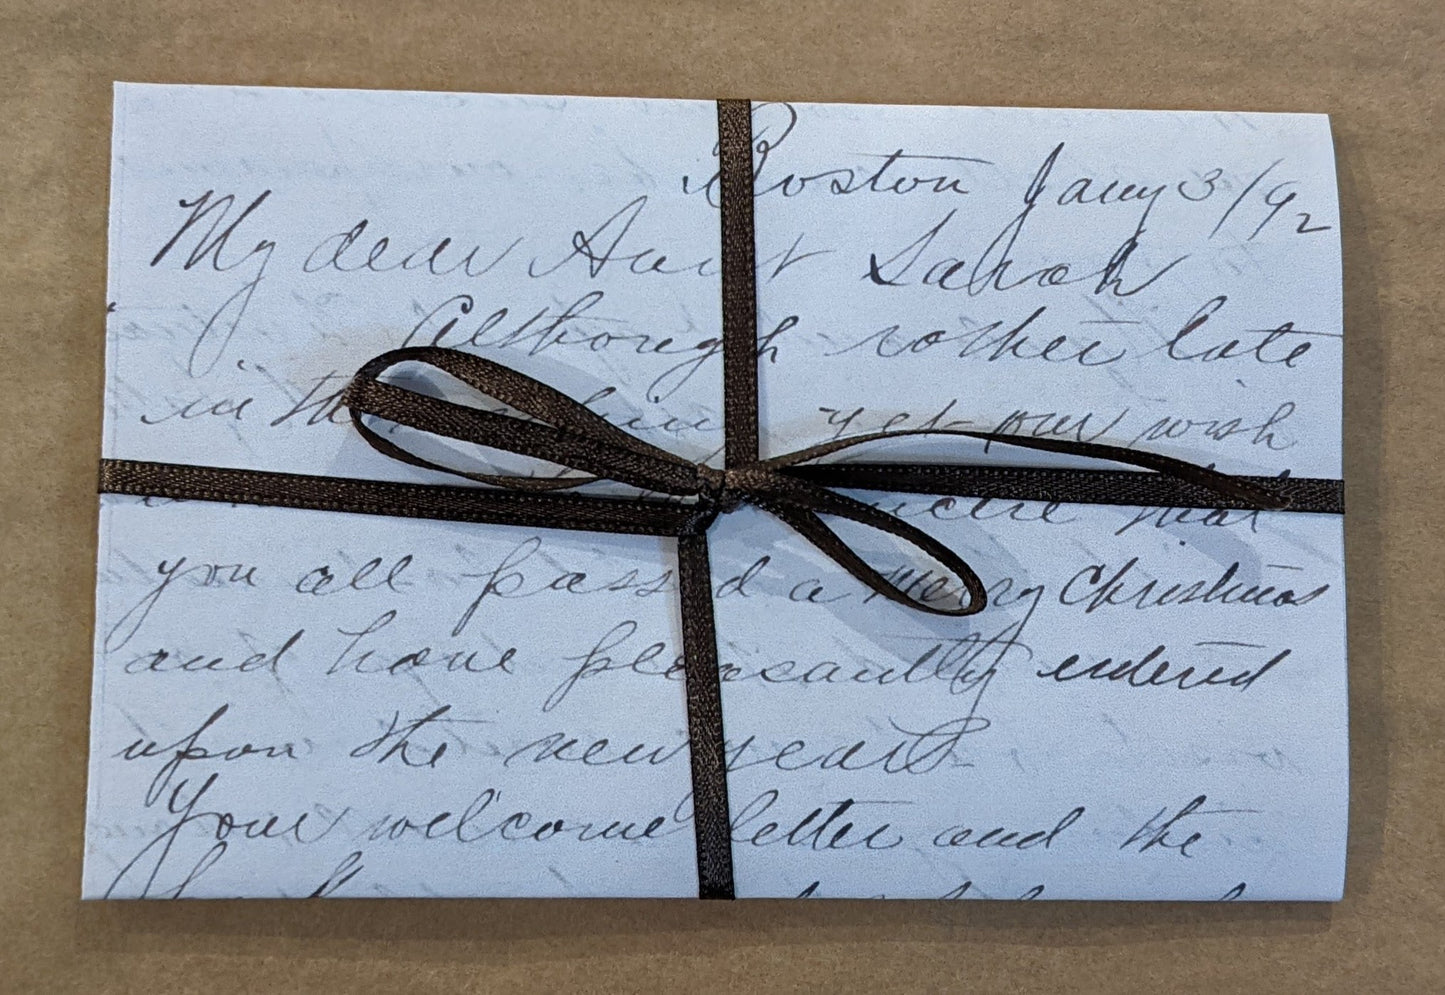 Boston Jany 3/92
My dear Aunt Sarah
Although rather late
in the yet our wish
that
you all passed a merry Christmas
and have pleasantly entered
upon the new year
Your welcome letter and the